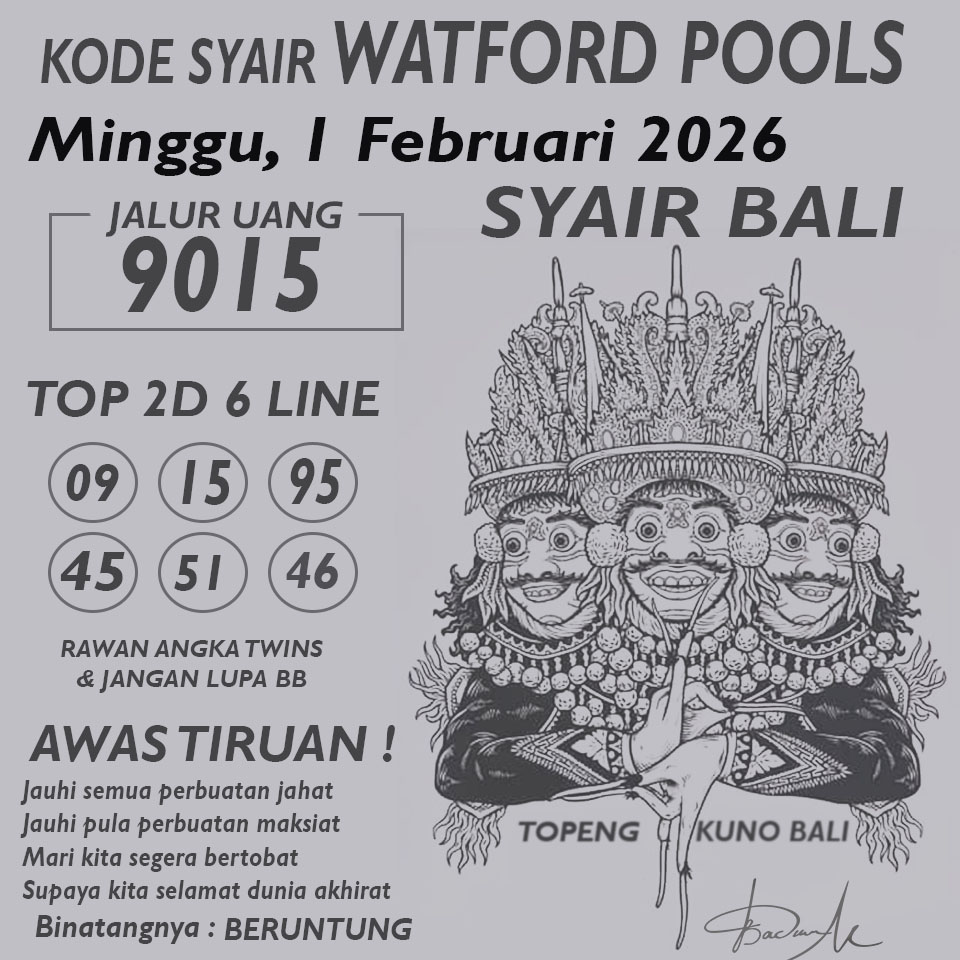 KODE SYAIR WATFORD POOLS
Minggu, 1 Februari 2026
SYAIR BALI
JALUR UANG
9015
TOP 2D 6 LINE
09 15 95
45 51 46
RAWAN ANGKA TWINS
& JANGAN LUPA BB
AWAS TIRUAN !
Jauhi semua perbuatan jahat
Jauhi pula perbuatan maksiat
Mari kita segera bertobat
Supaya kita selamat dunia akhirat
Binatangnya : BERUNTUNG
TOPENG KUNO BALI